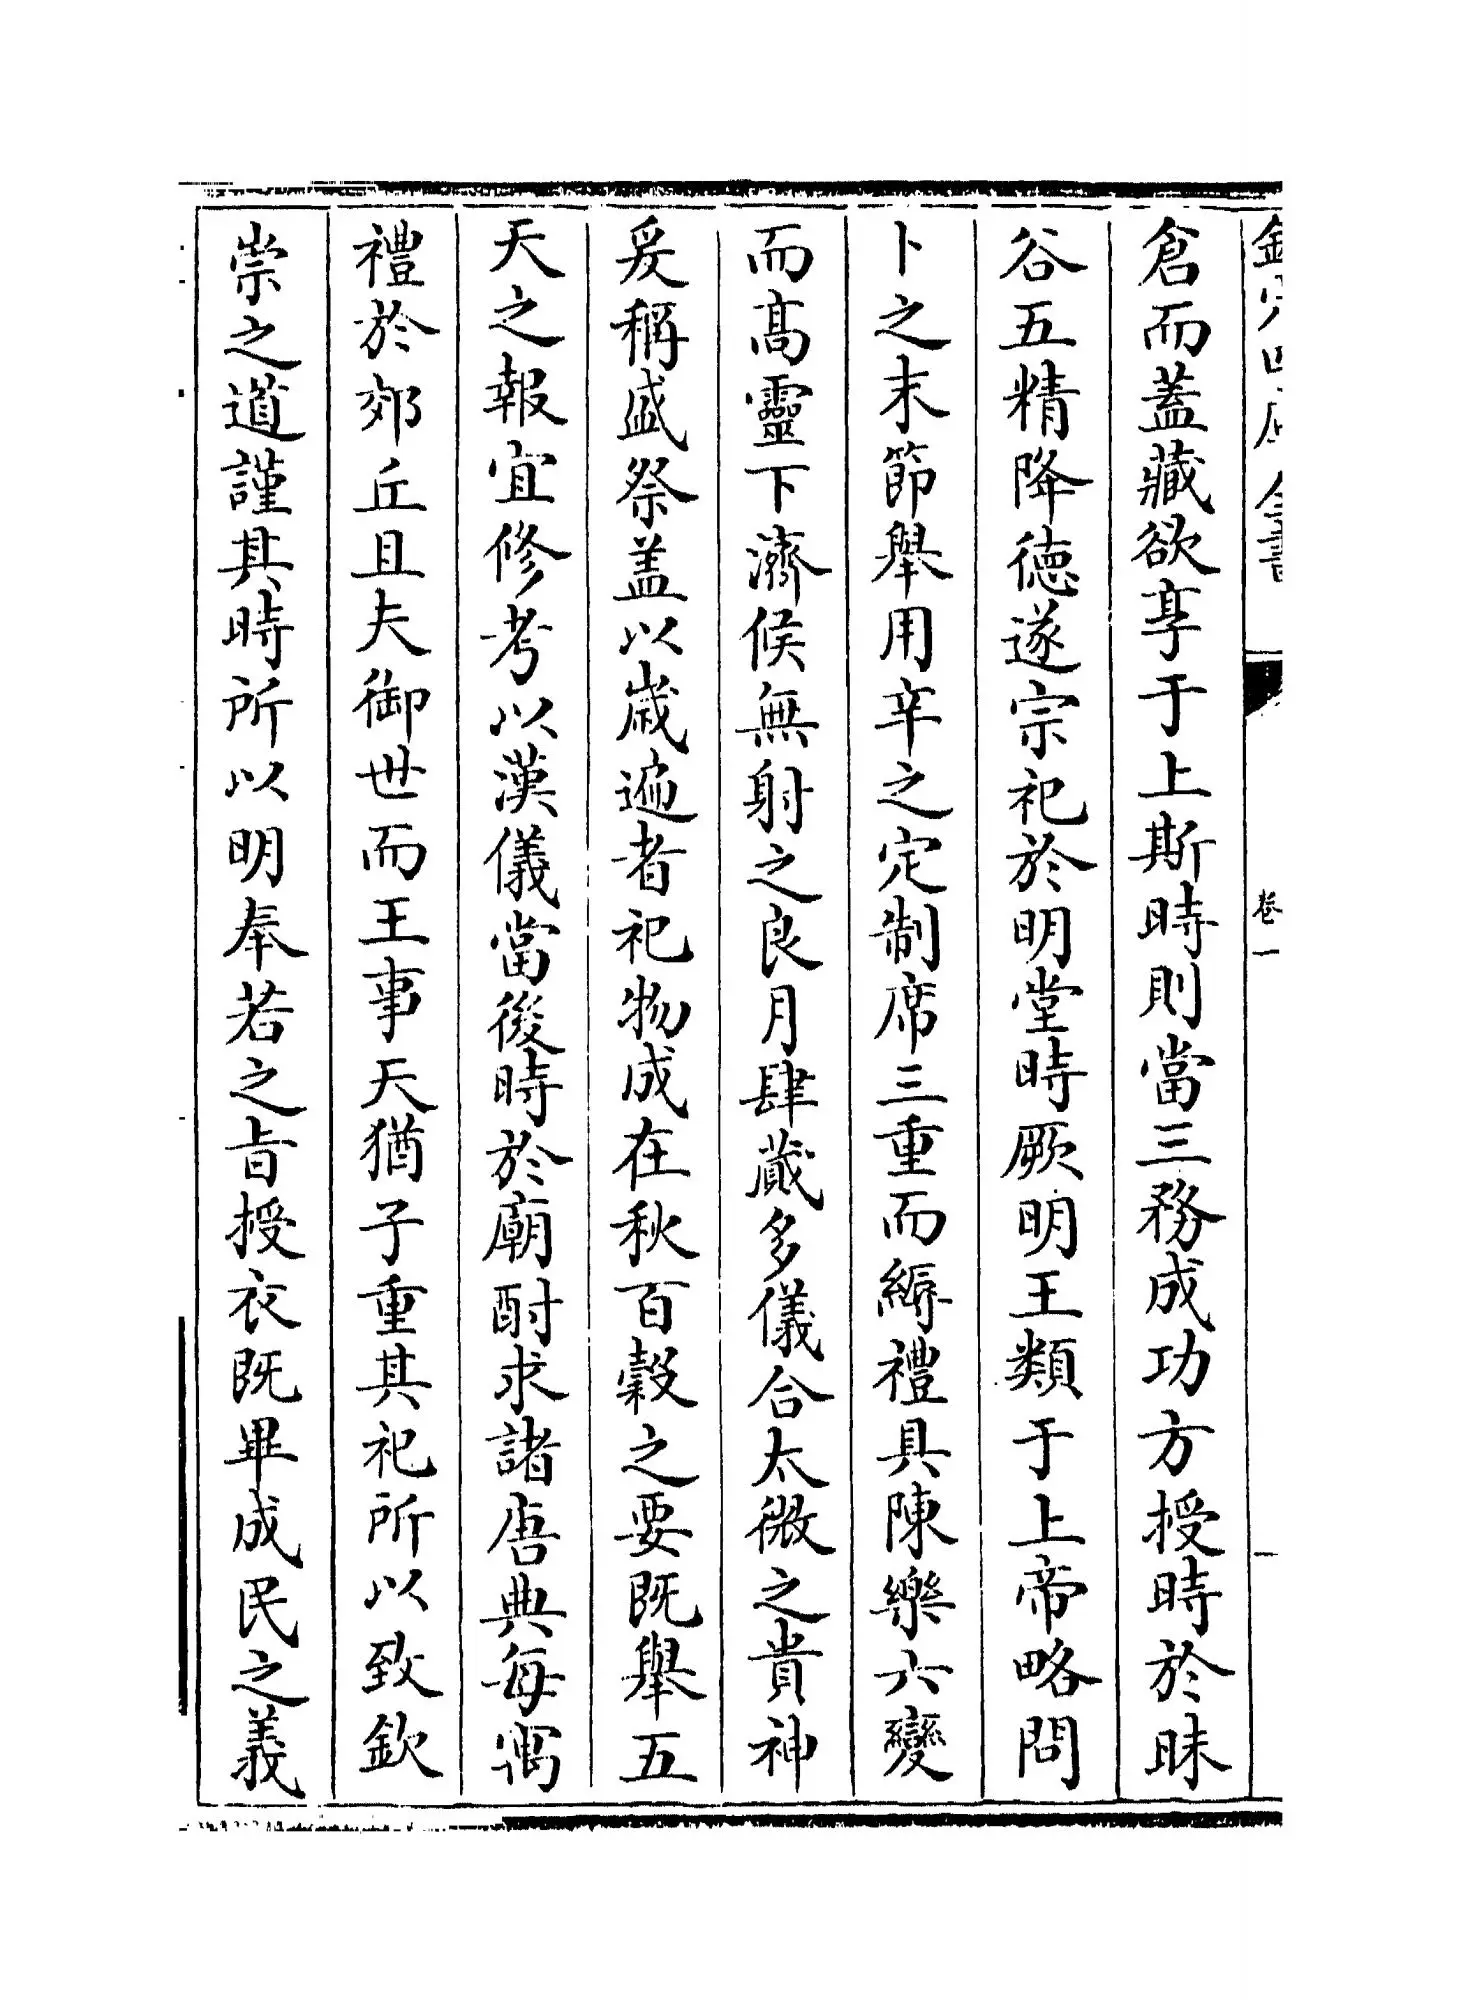 欽定四庫全書
卷一
倉而蓋藏欲享于上斯時則當三務成功方授時於昧
谷五精降德遂宗祀於明堂時厥明王類于上帝略問
卜之末節舉用辛之定制席三重而縟禮具陳樂六變
而髙靈下濟候無射之良月肆蕆多儀合太微之貴神
爰稱盛祭盖以嵗遍者祀物成在秋百榖之要既舉五
天之報宜修考以漢儀當後時於廟酎求諸唐典每寓
禮於郊丘且夫御世而王事天猶子重其祀所以致欽
崇之道謹其時所以明奉若之旨授衣既畢成民之義